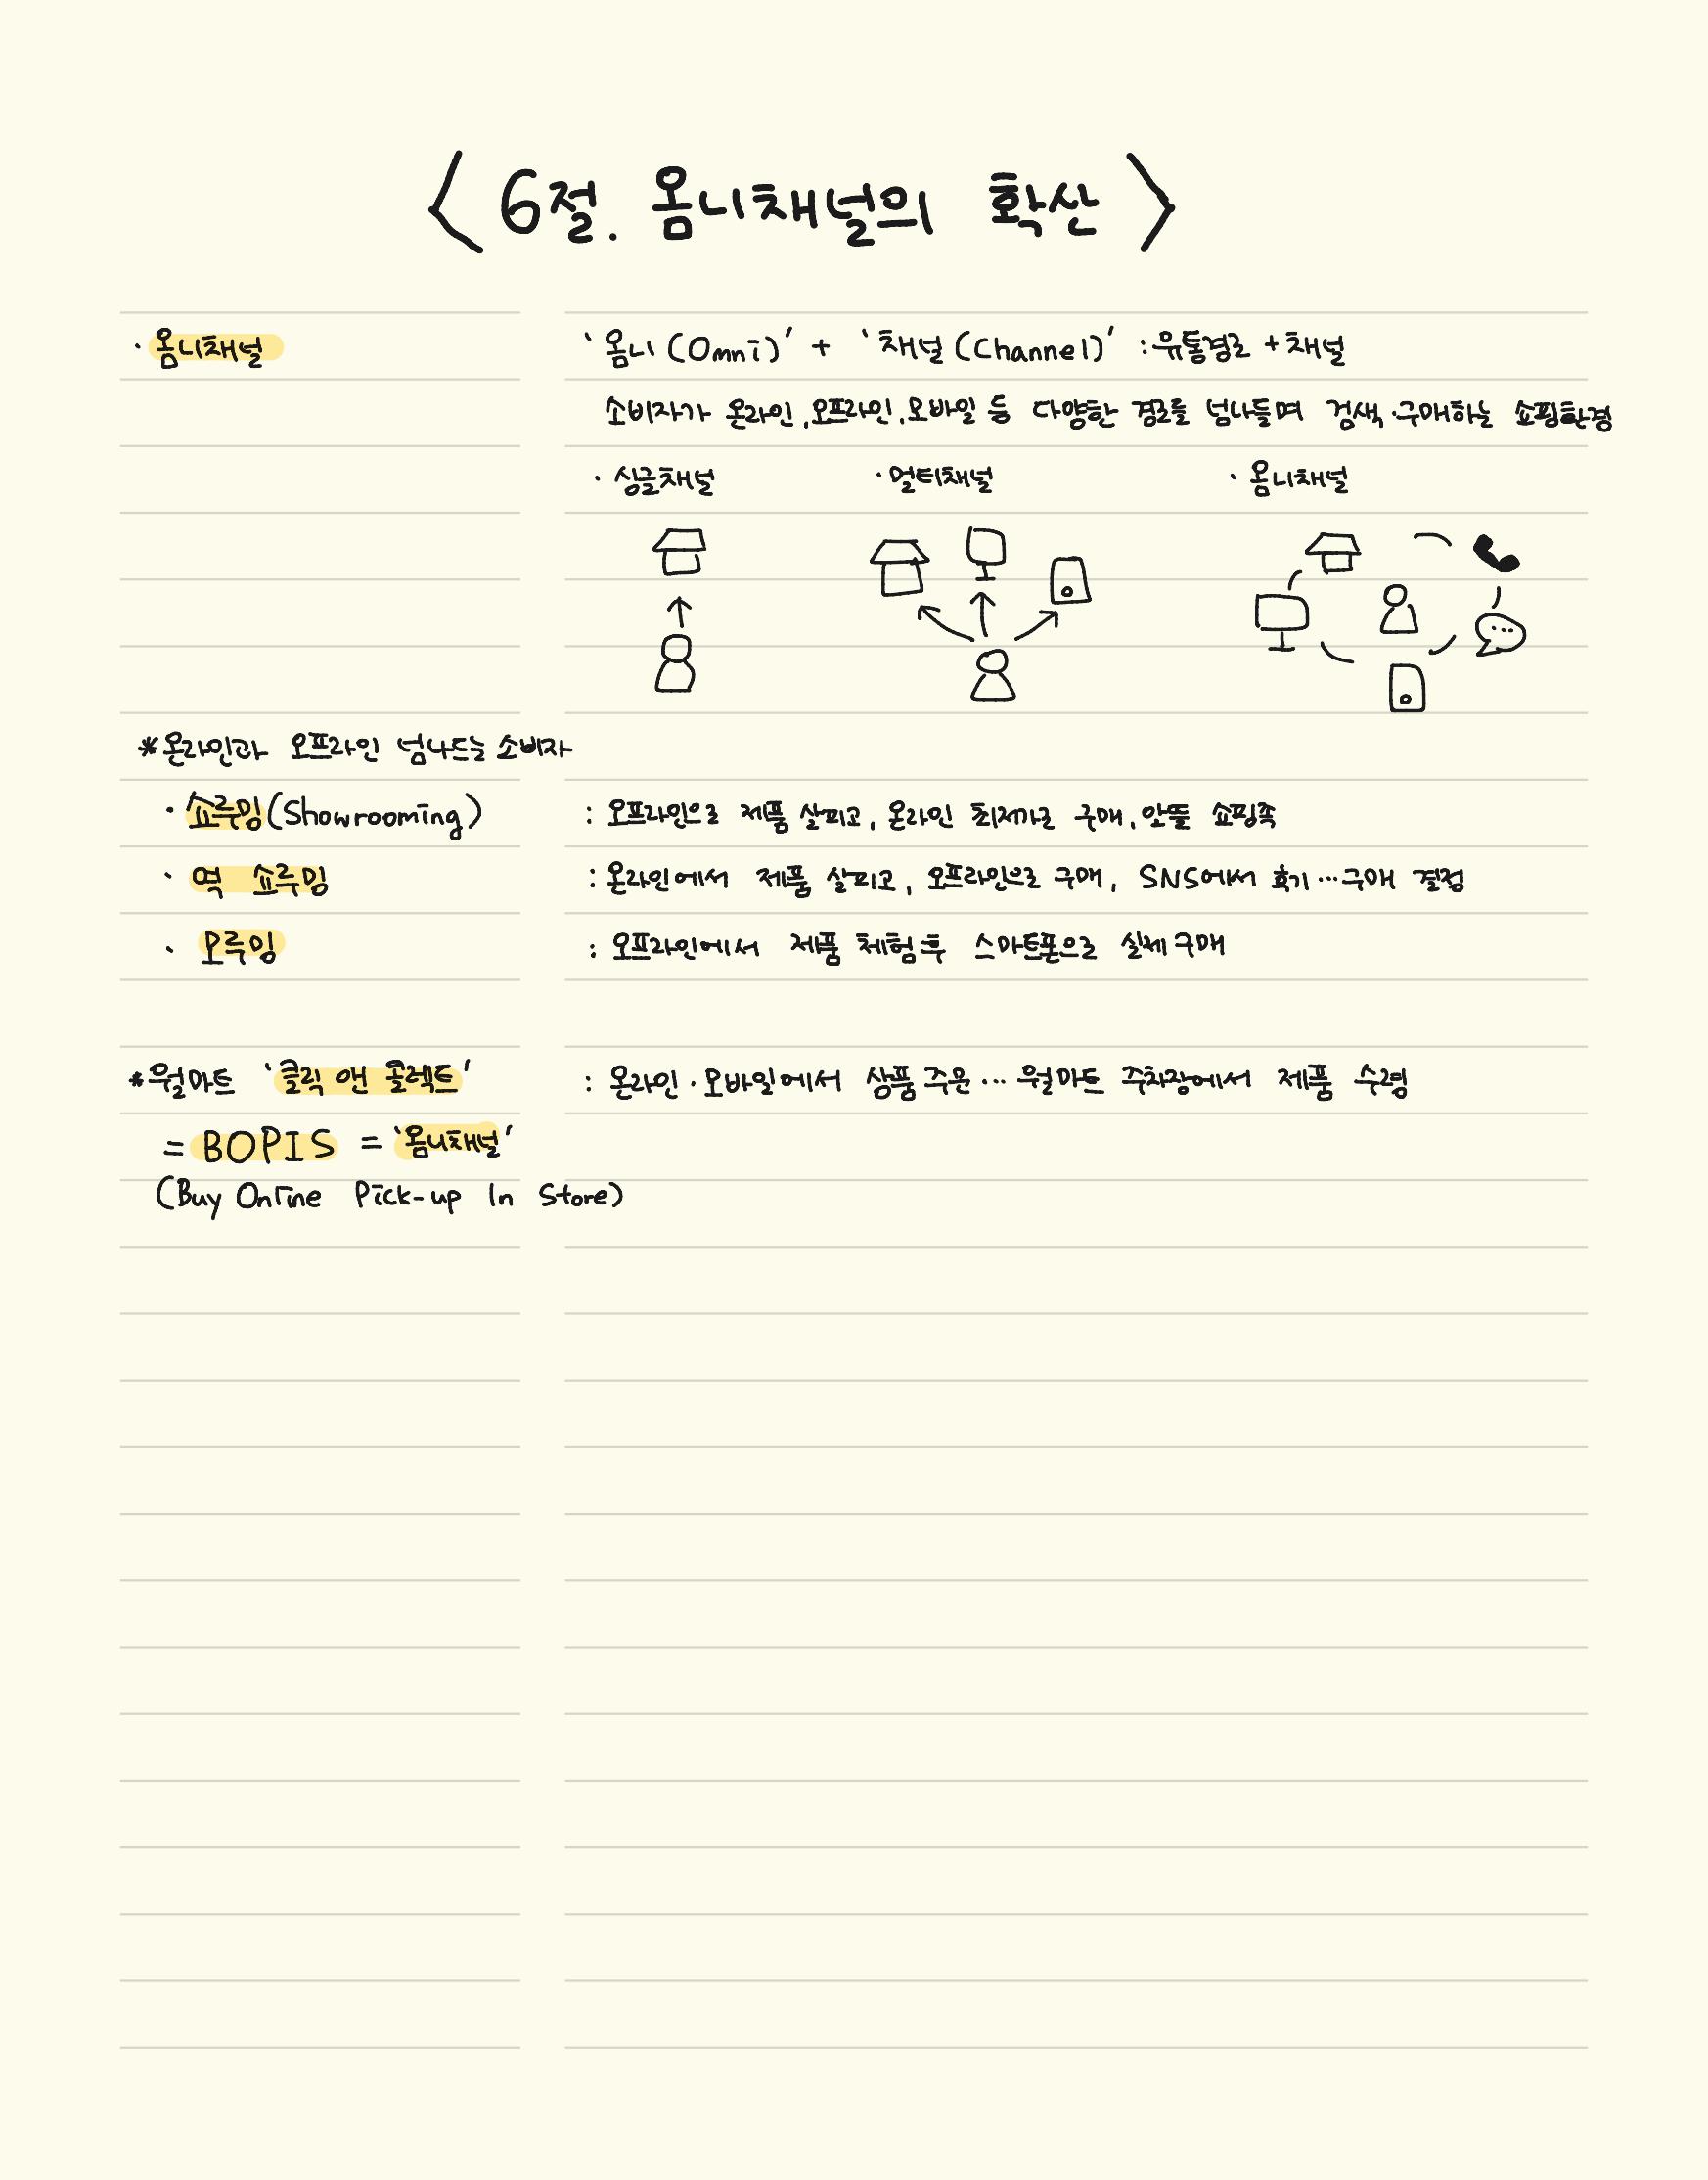 < 6절. 옴니채널의 확산 >
· 옴니채널
'옴니(Omni)' + '채널(Channel)' : 유통경로 + 채널
소비자가 온라인, 오프라인, 모바일 등 다양한 경로를 넘나들며 검색·구매하는 쇼핑환경
· 싱글채널 · 멀티채널 · 옴니채널
*온라인과 오프라인 넘나드는 소비자
· 쇼루밍(Showrooming) : 오프라인으로 제품 살피고, 온라인 최저가로 구매, 알뜰 쇼핑족
· 역 쇼루밍 : 온라인에서 제품 살피고, 오프라인으로 구매, SNS에서 후기…구매 결정
· 모루밍 : 오프라인에서 제품 체험 후 스마트폰으로 실제 구매
*월마트 '클릭 앤 콜렉트' : 온라인·모바일에서 상품 주문… 월마트 주차장에서 제품 수령
= BOPIS = '옴니채널'
(Buy Online Pick-up In Store)